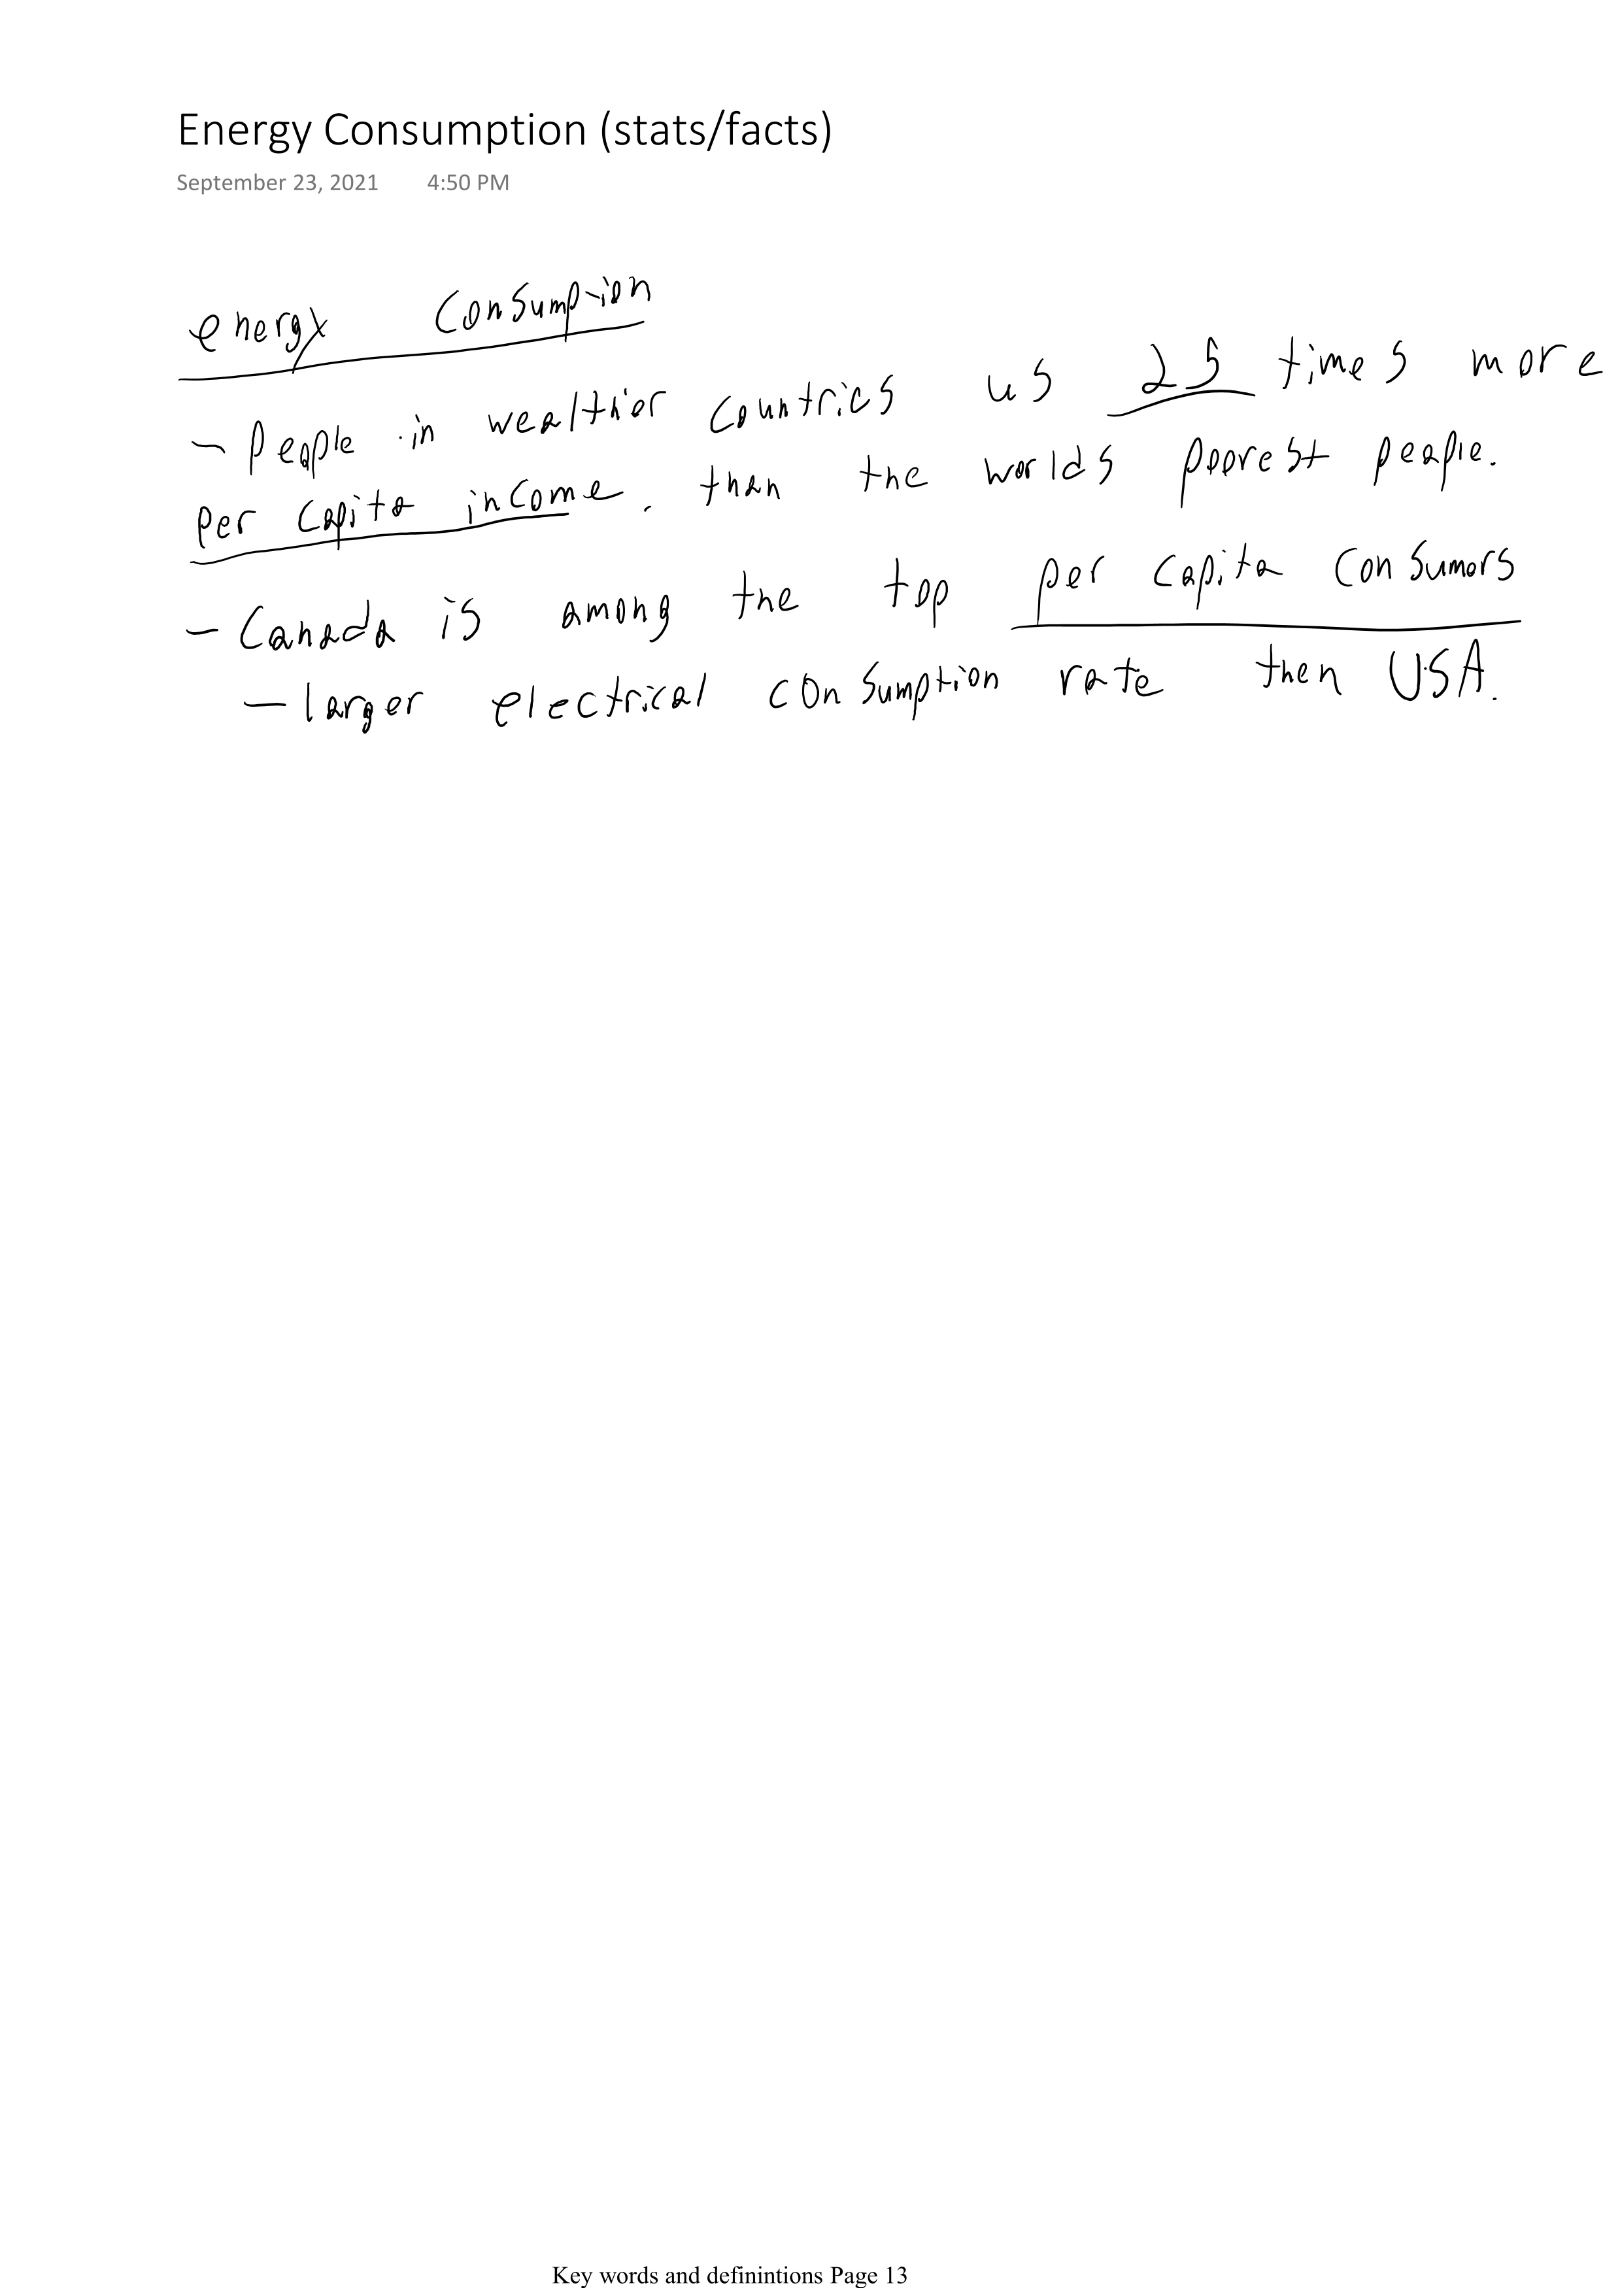 Energy Consumption (stats/facts)
September 23, 2021 4:50 PM
energy Consumption
- People in wealthier countries us 25 times more
per capita income. than the worlds poorest people.
- Canada is among the top per capita consumers
- larger electrical consumption rate then USA.
Key words and definintions Page 13